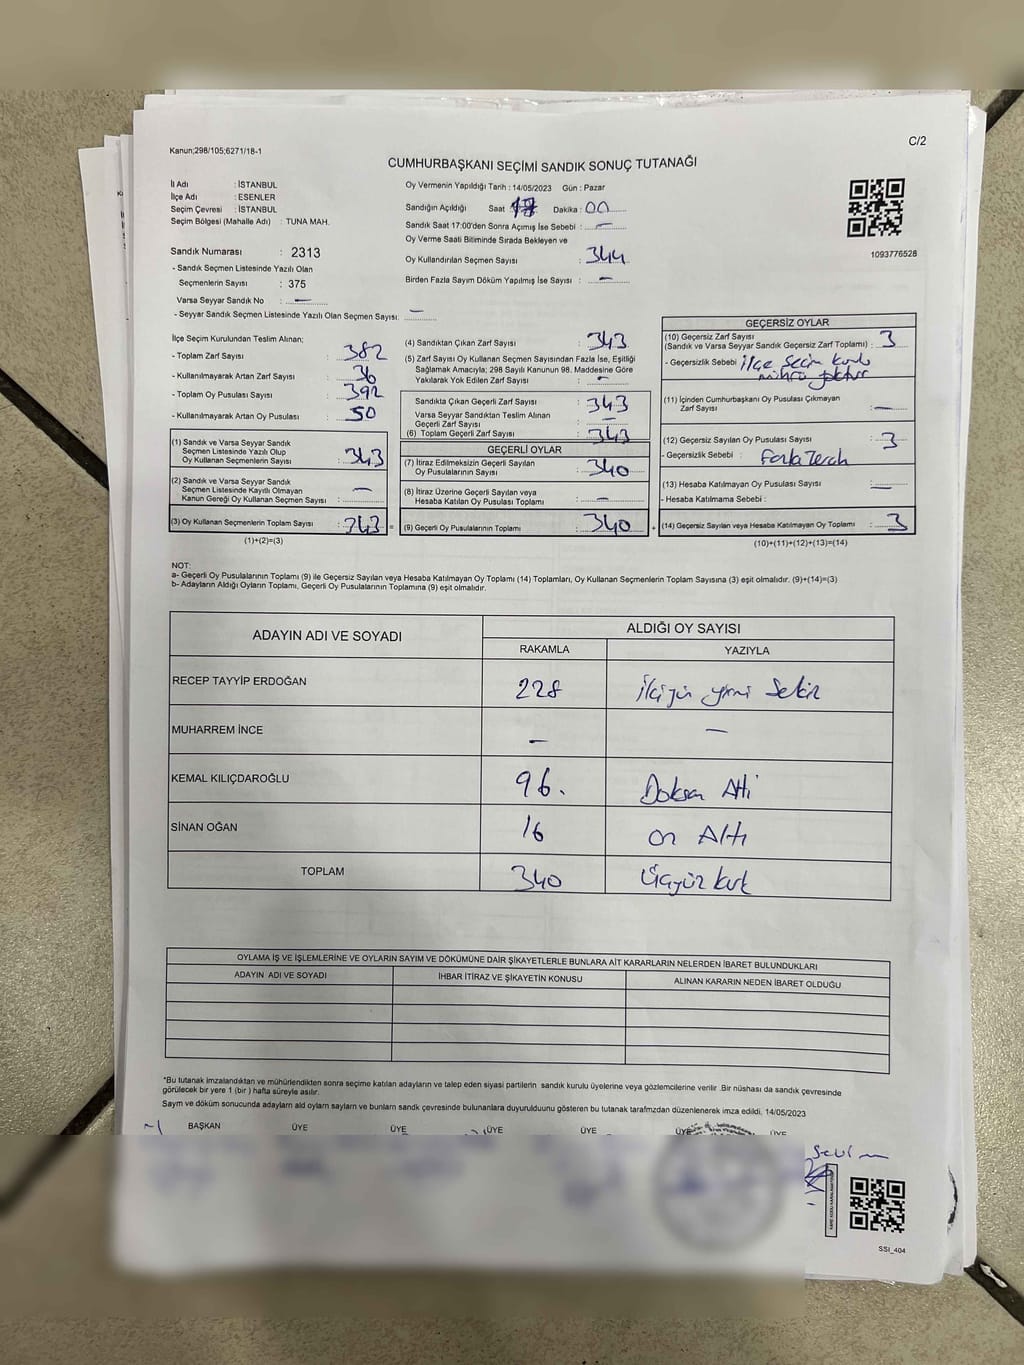 C/2
Kanun;298/105;6271/18-1
CUMHURBAŞKANI SEÇİMİ SANDIK SONUÇ TUTANAĞI
İl Adı : İSTANBUL
İlçe Adı : ESENLER
Seçim Çevresi : İSTANBUL
Seçim Bölgesi (Mahalle Adı) : TUNA MAH.
Sandık Numarası : 2313
- Sandık Seçmen Listesinde Yazılı Olan
Seçmenlerin Sayısı : 375
Varsa Seyyar Sandık No —
- Seyyar Sandık Seçmen Listesinde Yazılı Olan Seçmen Sayısı: —
Oy Vermenin Yapıldığı Tarih : 14/05/2023 Gün : Pazar
Sandığın Açıldığı Saat 17 Dakika : 00
Sandık Saat 17:00'den Sonra Açımış İse Sebebi : —
Oy Verme Saati Bitiminde Sırada Bekleyen ve
Oy Kullandırılan Seçmen Sayısı : 344
Birden Fazla Sayım Döküm Yapılmış İse Sayısı : —
1093776528
İlçe Seçim Kurulundan Teslim Alınan;
- Toplam Zarf Sayısı : 382
- Kullanılmayarak Artan Zarf Sayısı : 36
- Toplam Oy Pusulası Sayısı : 392
- Kullanılmayarak Artan Oy Pusulası : 50
(1) Sandık ve Varsa Seyyar Sandık
Seçmen Listesinde Yazılı Olup
Oy Kullanan Seçmenlerin Sayısı : 343
(2) Sandık ve Varsa Seyyar Sandık
Seçmen Listesinde Kayıtlı Olmayan
Kanun Gereği Oy Kullanan Seçmen Sayısı : —
(3) Oy Kullanan Seçmenlerin Toplam Sayısı : 343 =
(1)+(2)=(3)
(4) Sandıktan Çıkan Zarf Sayısı : 343
(5) Zarf Sayısı Oy Kullanan Seçmen Sayısından Fazla İse, Eşitliği
Sağlamak Amacıyla; 298 Sayılı Kanunun 98. Maddesine Göre
Yakılarak Yok Edilen Zarf Sayısı : —
Sandıkta Çıkan Geçerli Zarf Sayısı : 343
Varsa Seyyar Sandıktan Teslim Alınan
Geçerli Zarf Sayısı : —
(6) Toplam Geçerli Zarf Sayısı : 343
GEÇERLİ OYLAR
(7) İtiraz Edilmeksizin Geçerli Sayılan
Oy Pusulalarının Sayısı : 340
(8) İtiraz Üzerine Geçerli Sayılan veya
Hesaba Katılan Oy Pusulası Toplamı : —
(9) Geçerli Oy Pusulalarının Toplamı : 340 +
GEÇERSİZ OYLAR
(10) Geçersiz Zarf Sayısı
(Sandık ve Varsa Seyyar Sandık Geçersiz Zarf Toplamı) : 3
- Geçersizlik Sebebi : ilçe Seçim kurulu
mührü yoktur
(11) İçinden Cumhurbaşkanı Oy Pusulası Çıkmayan
Zarf Sayısı : —
(12) Geçersiz Sayılan Oy Pusulası Sayısı : 3
- Geçersizlik Sebebi : Fazla Tercih
(13) Hesaba Katılmayan Oy Pusulası Sayısı : —
- Hesaba Katılmama Sebebi :
(14) Geçersiz Sayılan veya Hesaba Katılmayan Oy Toplamı : 3
(10)+(11)+(12)+(13)=(14)
NOT:
a- Geçerli Oy Pusulalarının Toplamı (9) ile Geçersiz Sayılan veya Hesaba Katılmayan Oy Toplamı (14) Toplamları, Oy Kullanan Seçmenlerin Toplam Sayısına (3) eşit olmalıdır. (9)+(14)=(3)
b- Adayların Aldığı Oyların Toplamı, Geçerli Oy Pusulalarının Toplamına (9) eşit olmalıdır.
ADAYIN ADI VE SOYADI
ALDIĞI OY SAYISI
RAKAMLA YAZIYLA
RECEP TAYYİP ERDOĞAN 228 ikiyüz yirmi Sekiz
MUHARREM İNCE — —
KEMAL KILIÇDAROĞLU 96. Doksan Altı
SİNAN OĞAN 16 on Altı
TOPLAM 340 Üçyüz kırk
OYLAMA İŞ VE İŞLEMLERİNE VE OYLARIN SAYIM VE DÖKÜMÜNE DAİR ŞİKAYETLERLE BUNLARA AİT KARARLARIN NELERDEN İBARET BULUNDUKLARI
ADAYIN ADI VE SOYADI İHBAR İTİRAZ VE ŞİKAYETİN KONUSU ALINAN KARARIN NEDEN İBARET OLDUĞU
*Bu tutanak imzalandıktan ve mühürlendikten sonra seçime katılan adayların ve talep eden siyasi partilerin sandık kurulu üyelerine veya gözlemcilerine verilir .Bir nüshası da sandık çevresinde
görülecek bir yere 1 (bir ) hafta süreyle asılır.
Sayım ve döküm sonucunda adayların ald oylarn sayların ve bunların sandk çevresinde bulunanlara duyurulduunu gösteren bu tutanak tarafmzdan düzenlenerek imza edildi. 14/05/2023
BAŞKAN ÜYE ÜYE ÜYE ÜYE ÜYE ÜYE
SSI_404